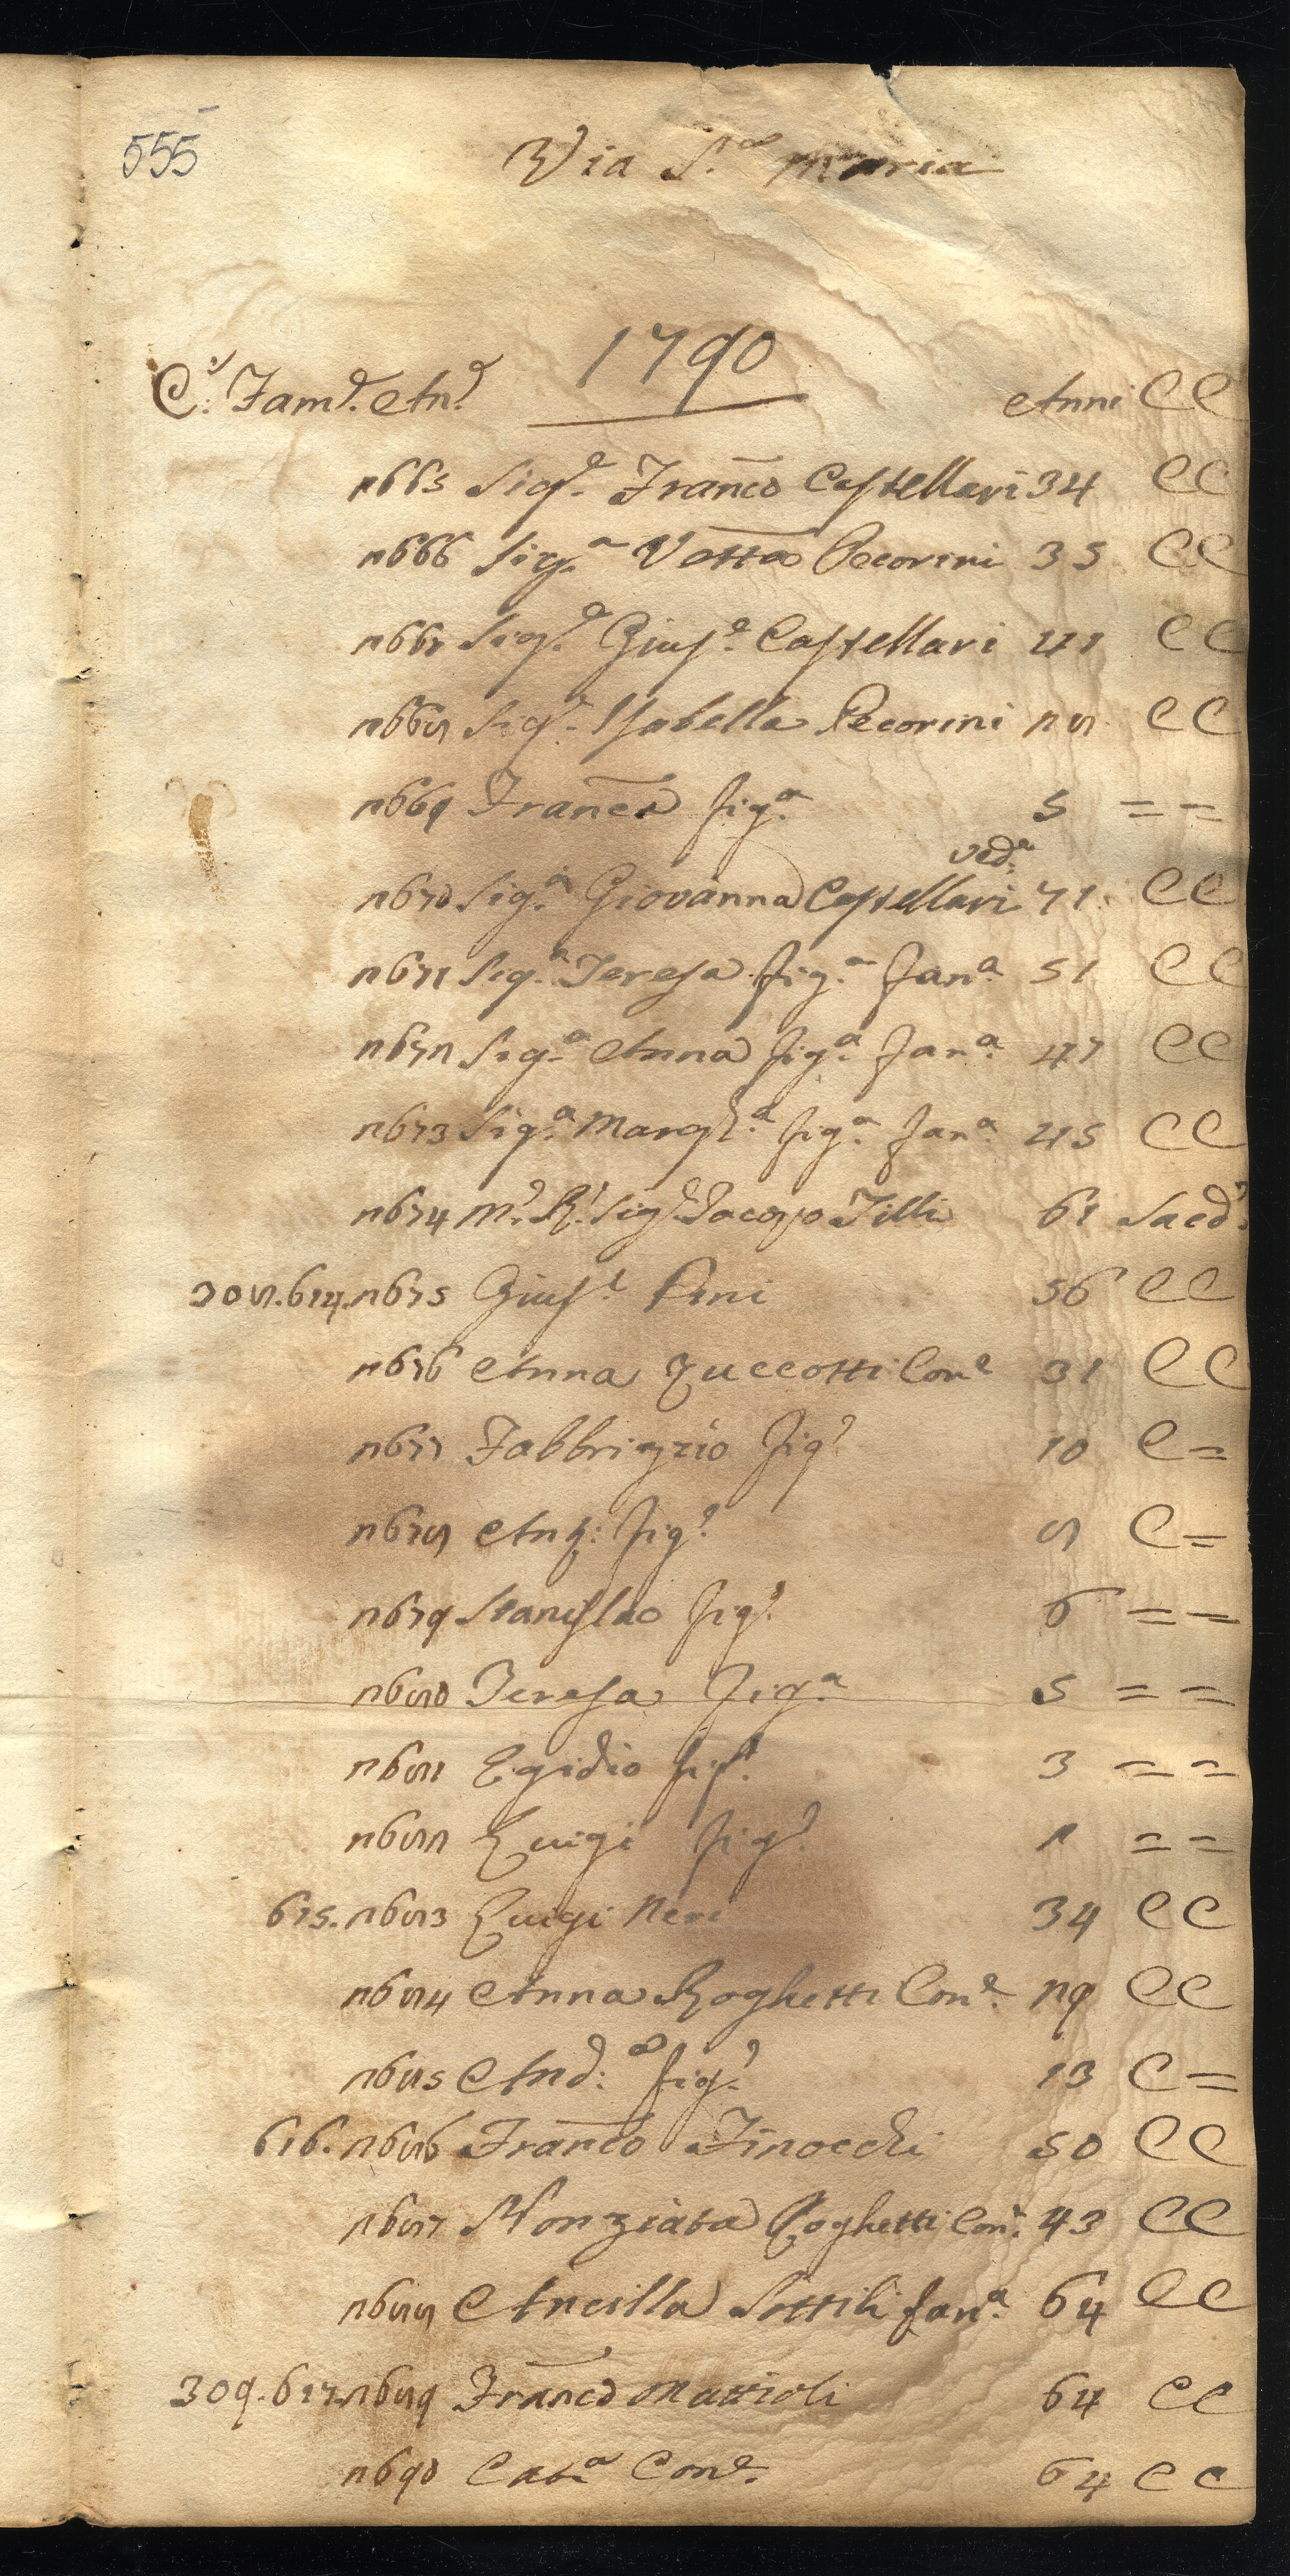 555
Via S.ª Maria
1790
C.ᵉ Fam.ᵉ An.ᵉ Anni CC
2665 Sig.ᵉ Franco Castellari 34 CC
2666 Sig.ª Vetta Pecorini 35 CC
2667 Sig.ᵉ Gius.ᵉ Castellari 41 CC
2668 Sig.ª Isabella Pecorini 28 CC
2669 Franca fig.ª 5 = =
2670 Sig.ª Giovanna Castellari ved.ª 71 CC
2671 Sig.ª Teresa fig.ª fan.ª 51 CC
2672 Sig.ª Anna fig.ª fan.ª 47 CC
2673 Sig.ª Margh.ª fig.ª fan.ª 45 CC
2674 M.º R.º Sig.ᵉ Jacopo Tilli 61 Saced.ᵉ
308. 614. 2675 Gius.ᵉ Pini 56 CC
2676 Anna Zuccotti Con.ᵉ 31 CC
2677 Fabbrizio fig.º 10 C =
2678 Ant: fig.º 8 C =
2679 Stanislao fig.º 6 = =
2680 Teresa fig.ª 5 = =
2681 Egidio fig.º 3 = =
2682 Luigi fig.º 1 = =
615. 2683 Luigi Neri 34 CC
2684 Anna Roghetti Con.ᵉ 29 CC
2685 And:ª fig.º 13 C =
616. 2686 Franco Finocchi 50 CC
2687 Nonziata Roghetti Con.ᵉ 43 CC
2688 Ancilla Sottili fan.ª 64 CC
309. 617. 2689 Franco Mattioli 64 CC
2690 Cat.ª Con.ᵉ 64 CC